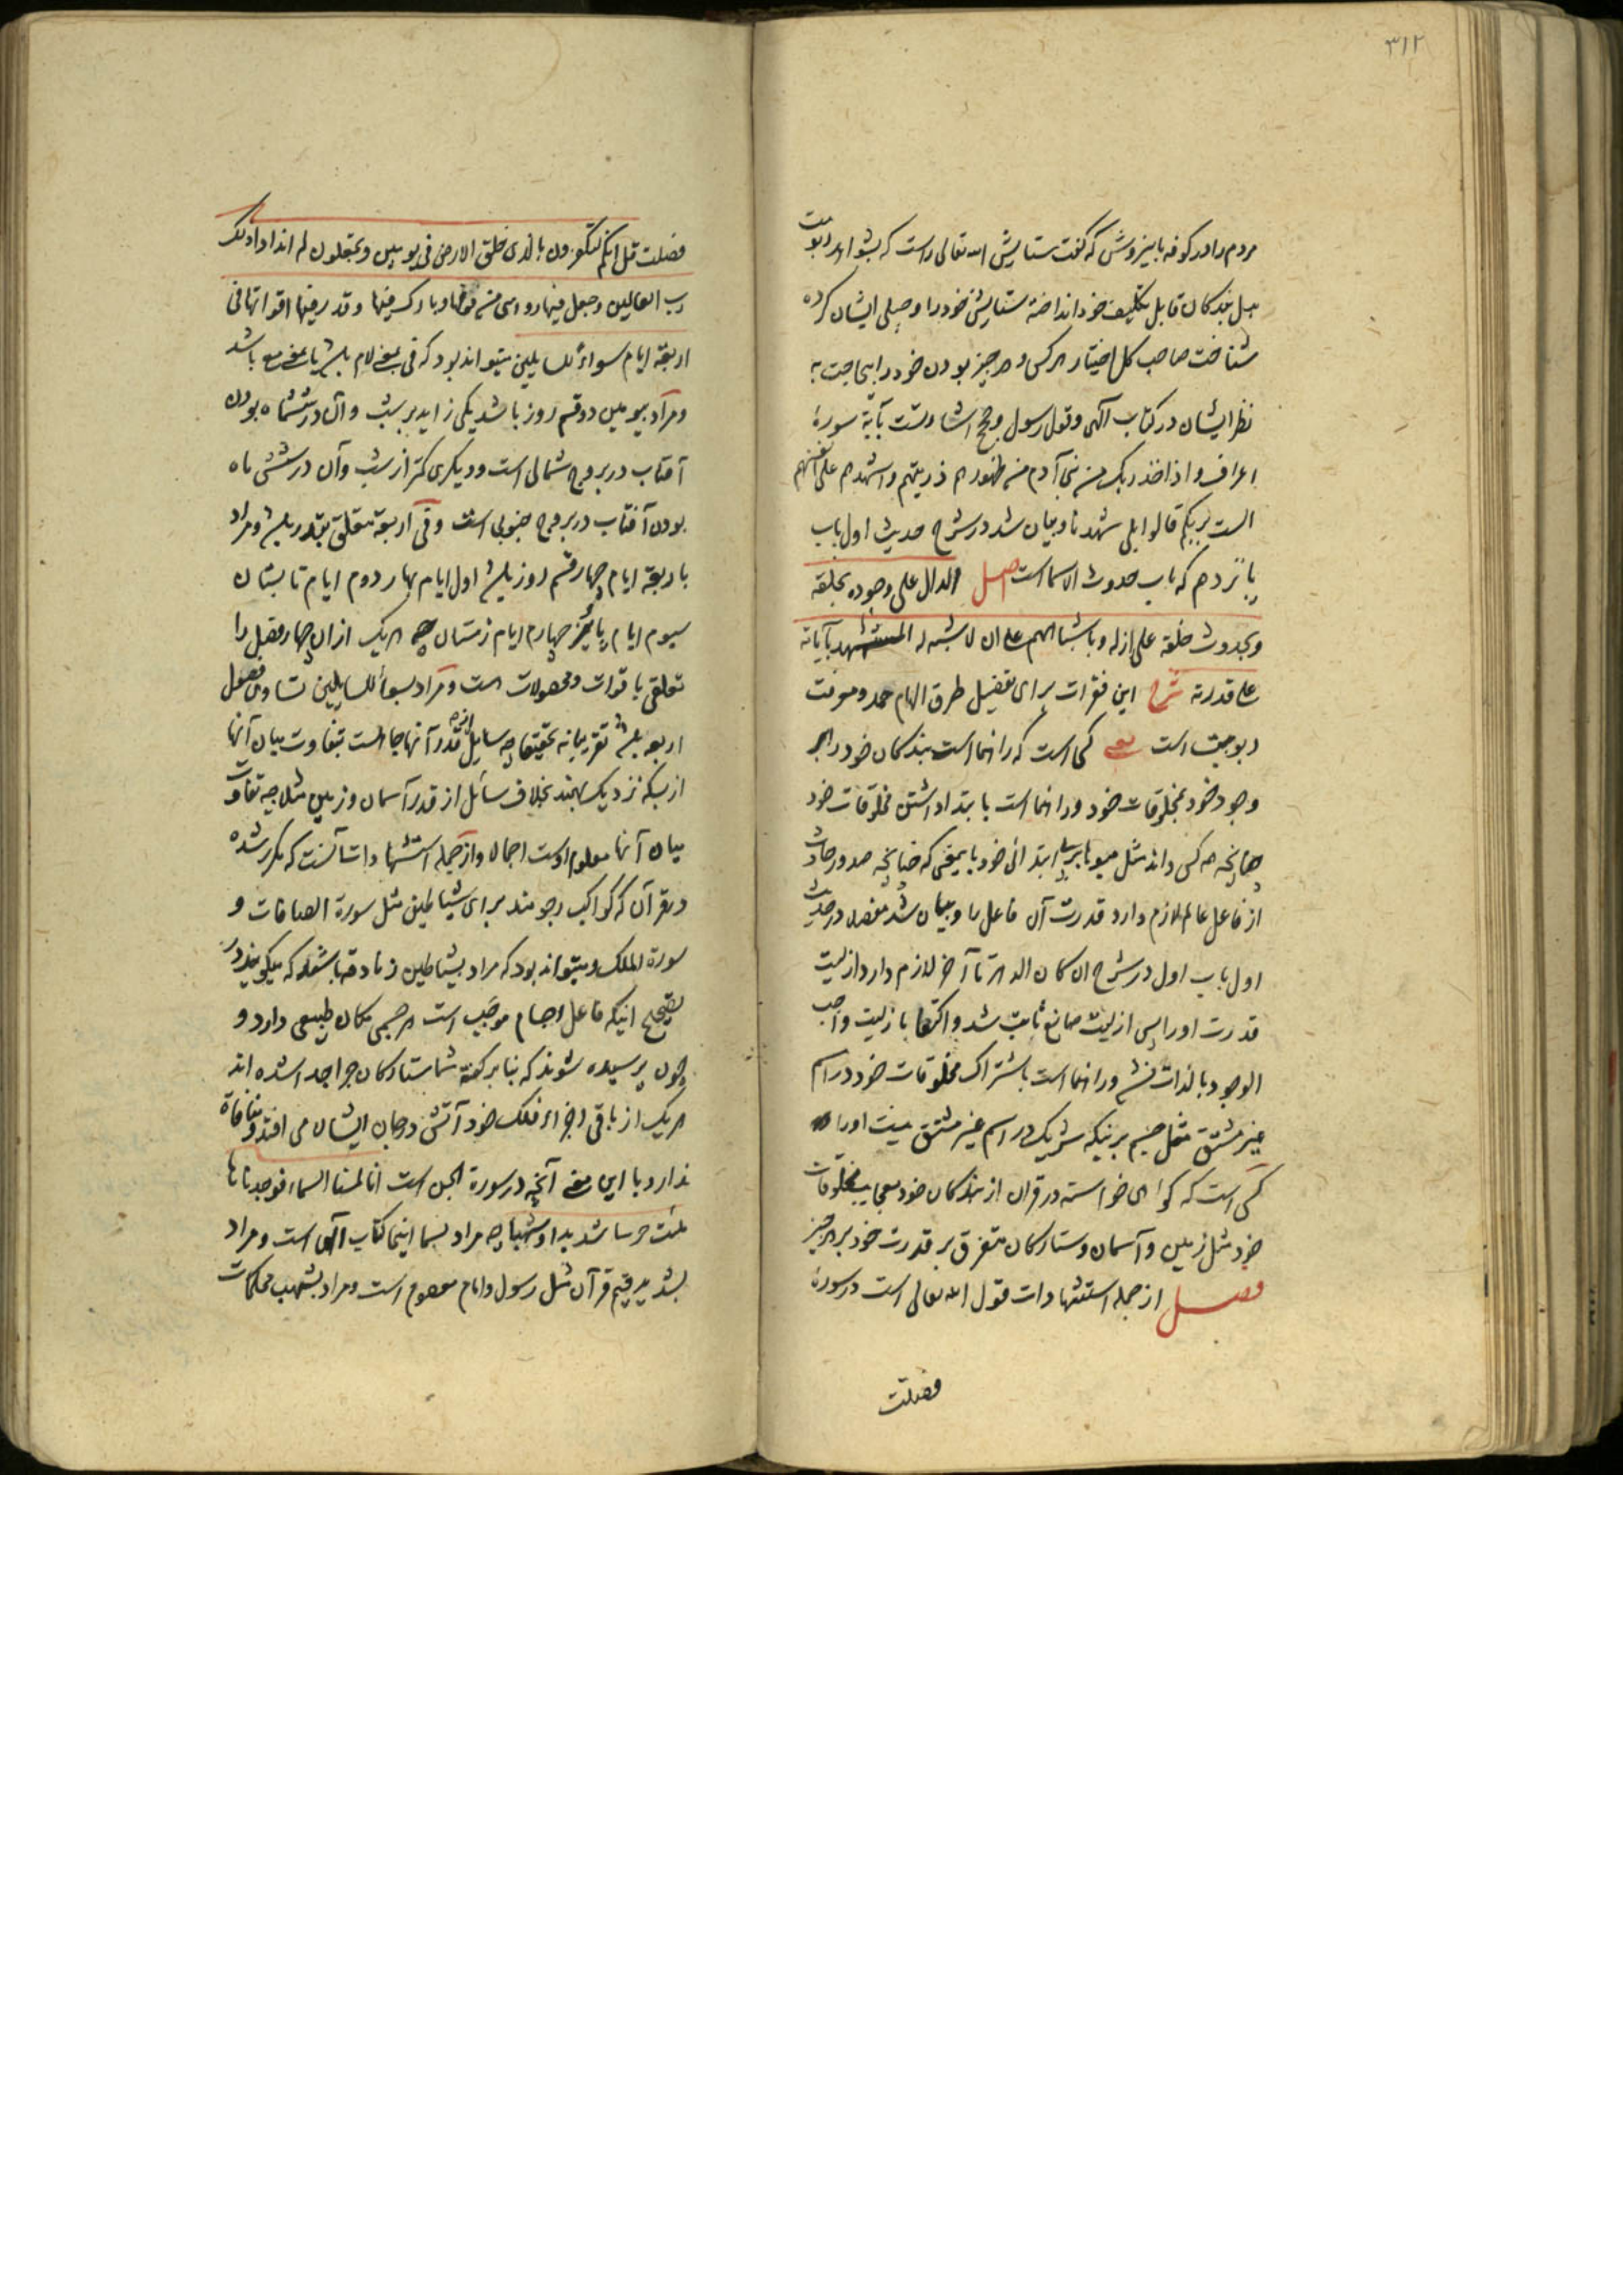 ۳۱۲
مردم را در کوفه باین روش که گفت ستایش الله تعالی راست که بشواهد ربوبیت
بدل بندگان قابل تکلیف خود انداخته ستایش خود را و جبلی ایشان کرده
شناخت صاحب کل اختیار هر کس و هر چیز بودن خود را بی حاجت به
نظر ایشان در کتاب الهی و قول رسول و حجج اشارتست بآیهٔ سورهٔ
اعراف و اذ اخذ ربک من بنی آدم من ظهورهم ذریتهم و اشهدهم علی انفسهم
الست بربکم قالوا بلی شهدنا و بیان شد در شرح حدیث اول باب
پانزدهم که باب حدوث الاسماست اصل الدال علی وجوده بخلقه
و بحدوث خلقه علی ازله و باشتباههم علی ان لا شبه له المستشهد بآیاته
علی قدرته شرح این فقرات برای تفصیل طرق الهام حمد و معرفت
ربوبیت است یعنی کسی است که راهنما است بندگان خود را بر
وجود خود بمخلوقات خود و راهنما است بابتدا داشتن مخلوقات خود
چنانچه هر کس داند مثل میوها بر بی ابتدائی خود باین معنی که چنانچه صدور حادث
از فاعل عالم لازم دارد قدرت آن فاعل را و بیان شد مفصلا در حدیث
اول باب اول در شرح ان کان الدهر تا آخر لازم دارد ازلیت
قدرت او را پس ازلیت صانع ثابت شد و اکتفا بازلیت واجب
الوجود بالذات نشد و راهنما است باشتراک مخلوقات خود در اسم
غیر مشتق مثل جسم بر اینکه شریک در اسم غیر مشتق نیست او را
کسی است که گواهی خواسته در قران از بندگان خود بعجایب مخلوقات
خود مثل زمین و آسمان و ستارگان متفرق بر قدرت خود بر هر چیز
فصل از جمله استشهادات قول الله تعالی است در سورهٔ
فصلت
فصلت قل ائنکم لتکفرون بالذی خلق الارض فی یومین و تجعلون له اندادا ذلک
رب العالمین و جعل فیها رواسی من فوقها و بارک فیها و قدر فیها اقواتها فی
اربعة ایام سواء للسایلین میتواند بود که فی بمعنی لام باشد یا بمعنی مع باشد
و مراد بیومین دو قسم روز باشد یکی زاید بر شب و آن در ششماه بودن
آفتاب در بروج شمالی است و دیگری کمتر از شب و آن در شش ماه
بودن آفتاب در بروج جنوبی است و فی اربعة متعلق بقدر باشد و مراد
باربعة ایام چهار قسم روز باشد اول ایام بهار دوم ایام تابستان
سیوم ایام پائیز چهارم ایام زمستان چه هر یک ازان چهار فصل را
تعلقی باقوات و محصولات هست و مراد بسواء للسایلین تساوی فصول
اربعه باشد تقریبا نه تحقیقا چه سایل از قدر آنها جاهلست بتفاوت میان آنها
از بسکه نزدیک بهمند بخلاف سائل از قدر آسمان و زمین مثلا چه تفاوت
میان آنها معلوم اوست اجمالا و از جمله استشهادات آنست که مکرر شده
در قرآن که کواکب رجومند برای شیاطین مثل سورة الصافات و
سورة الملک و میتواند بود که مراد بشیاطین زنادقه باشد که میگویند در
تصحیح اینکه فاعل اجسام موجب است هر جسمی مکان طبیعی دارد و
چون پرسیده شوند که بنابر گفته شما ستارگان چرا جدا شده اند
هر یک از باقی اجزاء فلک خود آتش در جان ایشان می افتد و منافاة
ندارد با این معنی آنچه در سورة الجن است انا لمسنا السماء فوجدناها
ملئت حرسا شدیدا و شهبا چه مراد بسما اینجا کتاب الهی است و مراد
بشدید قیم قرآن مثل رسول و امام معصوم است و مراد بشهب محکمات